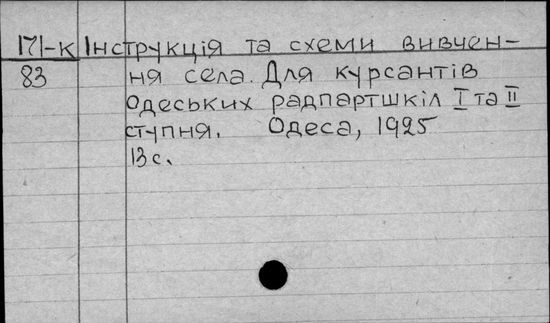 171-к Інструкція та схеми вивчен-
83 ня села. Для курсантів
Одеських радпартшкіл I та II
ступня. Одеса, 1925
13 с.